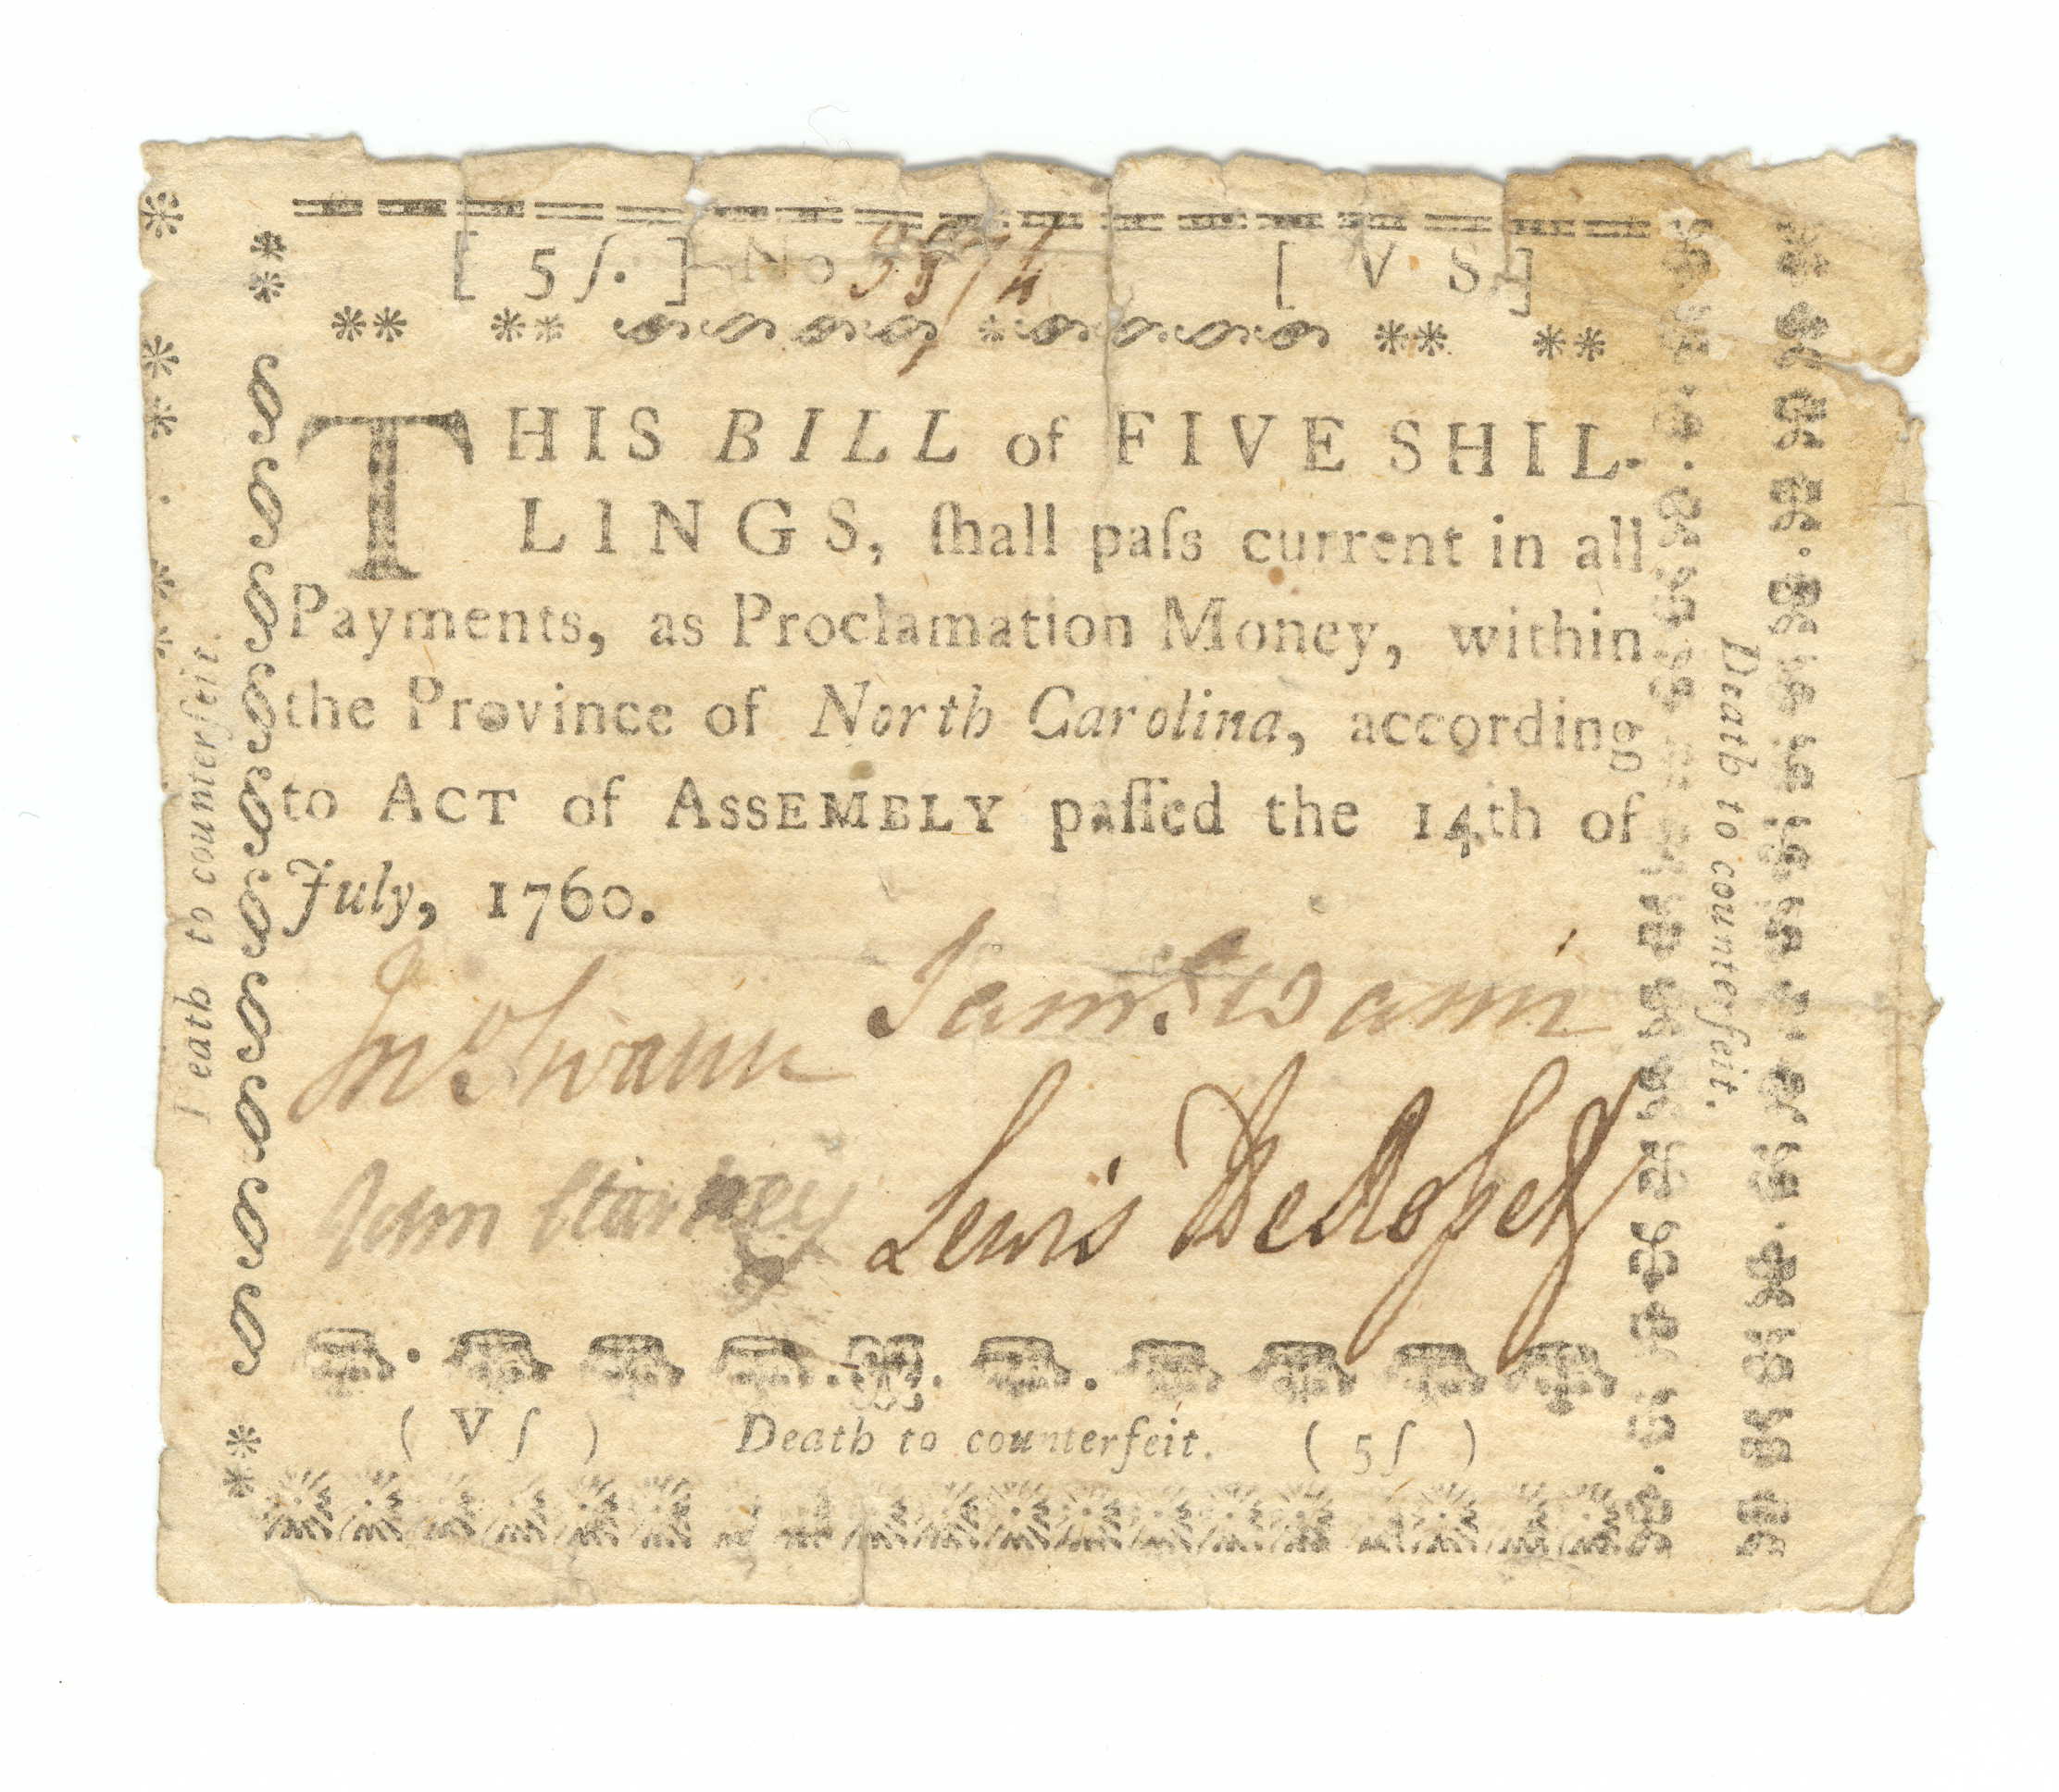 [ 5 ſ. ] No 9874 [ V S. ]
THIS BILL of FIVE SHIL-
LINGS, ſhall paſs current in all
Payments, as Proclamation Money, within
the Province of North Carolina, according
to ACT of ASSEMBLY paſſed the 14th of
July, 1760.
Jno Swann Saml Swann
John Starkey Lewis DeRosset
( V ſ ) Death to counterfeit. ( 5 ſ )
Death to counterfeit.
Death to counterfeit.